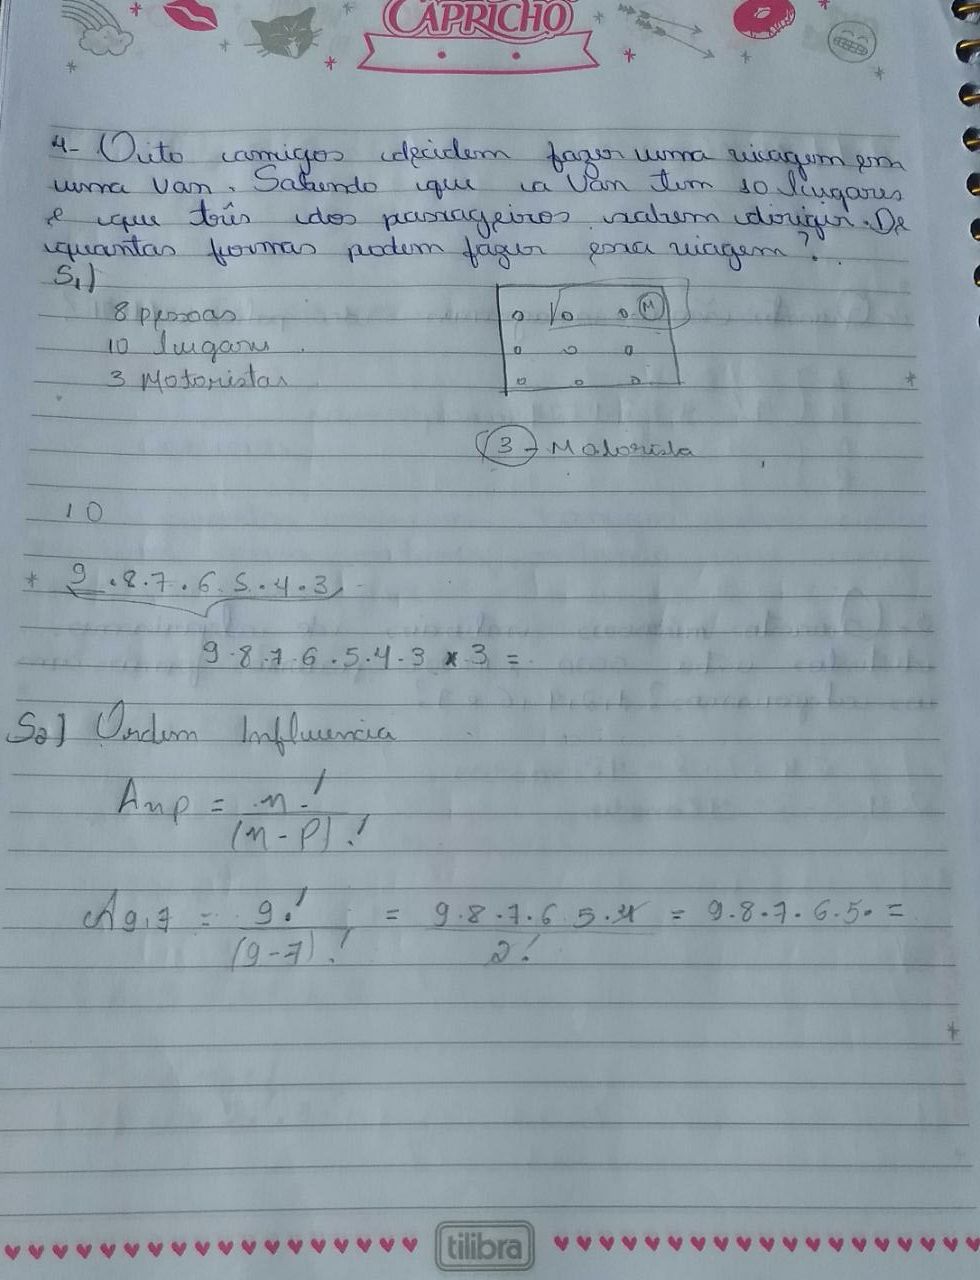 CAPRICHO
4- Oito amigos decidem fazer uma viagem em
uma van. Sabendo que a Van tem 10 lugares
e que três dos passageiros sabem dirigir. De
quantas formas podem fazer essa viagem?
S1)
8 pessoas
10 lugares
3 Motoristas
M
3 - Motorista
10
* 9.8.7.6.5.4.3
9.8.7.6.5.4.3 x 3 =
S2) Ordem Influencia
Anp = n! / (n-p)!
A9,7 = 9! / (9-7)! = 9.8.7.6.5.4 / 2! = 9.8.7.6.5. =
tilibra